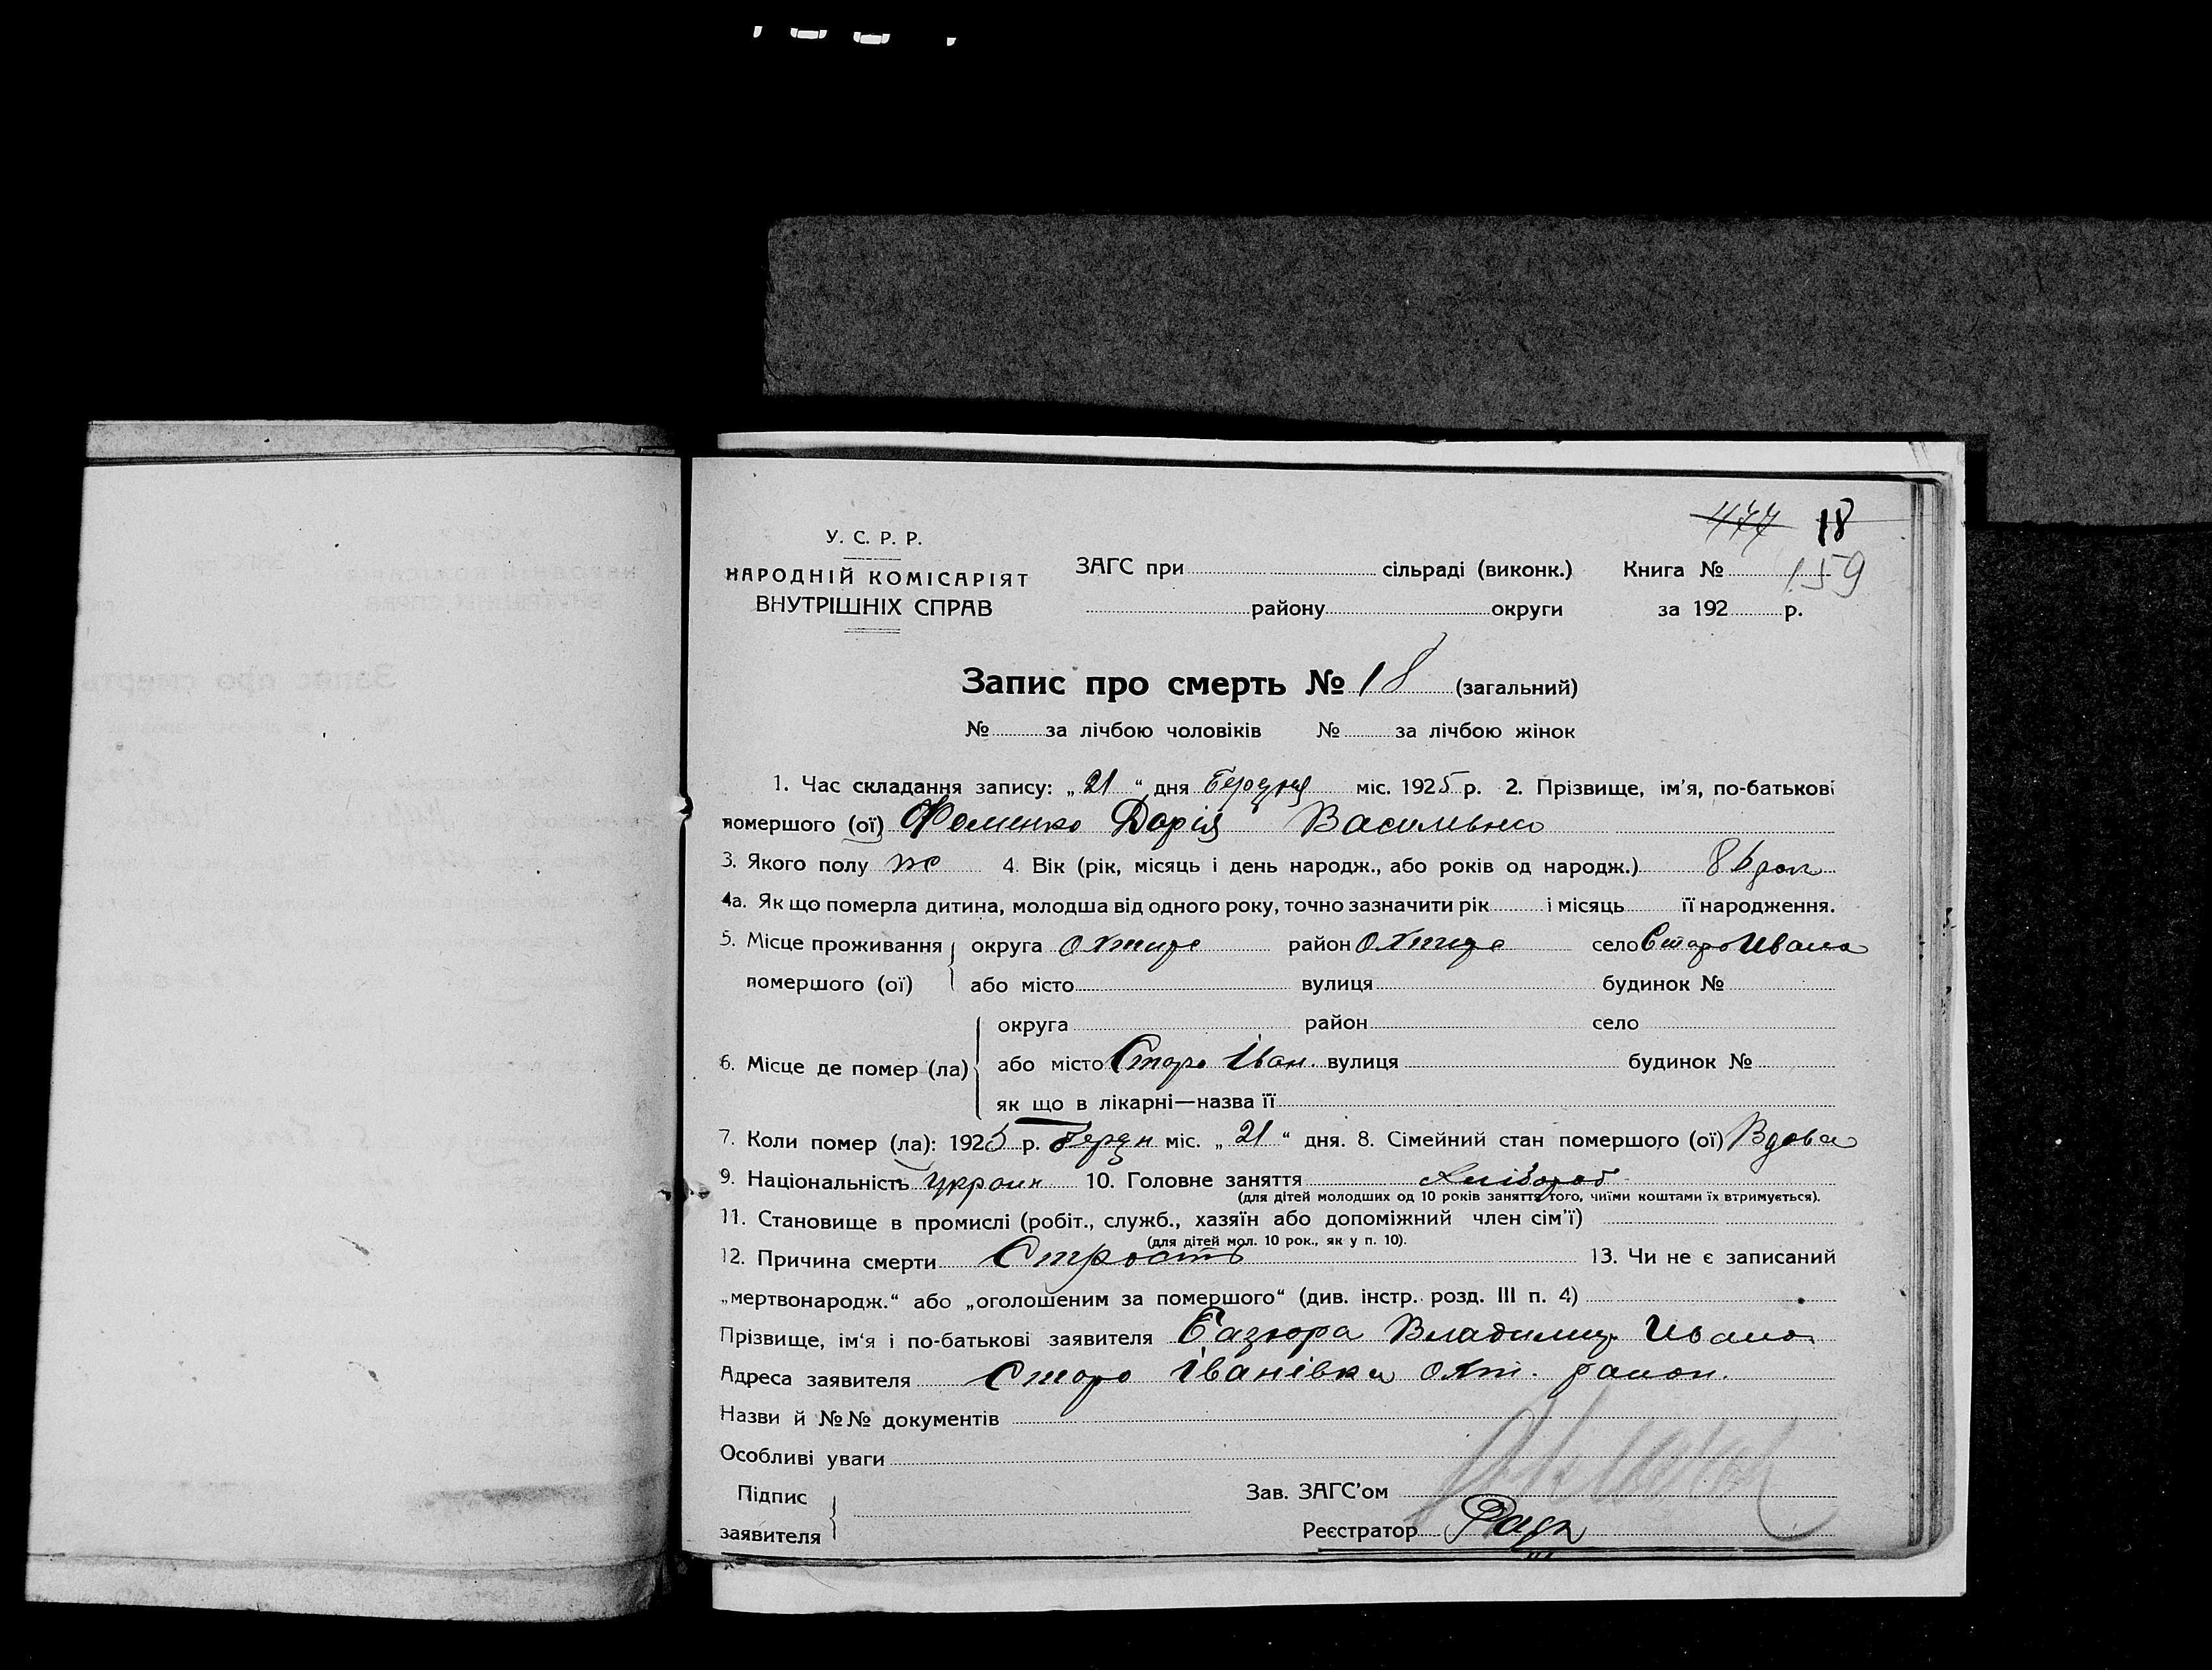 477 18
159
У. С. Р. Р.
НАРОДНІЙ КОМІСАРІЯТ
ВНУТРІШНІХ СПРАВ
ЗАГС при сільраді (виконк.) Книга №
району округи за 192 р.
Запис про смерть № 18 (загальний)
№ за лічбою чоловіків № за лічбою жінок
1. Час складання запису: „ 21 “ дня міс. 1925 р. 2. Прізвище, ім'я, по-батькові
помершого (ої) Фоменко Дарія Васильна
3. Якого полу ж 4. Вік (рік, місяць і день народж., або років од народж.)
4а. Як що померла дитина, молодша від одного року, точно зазначити рік і місяць її народження.
5. Місце проживання округа Охтирс район Охтирс село Старо Ивана
помершого (ої) або місто вулиця будинок №
округа район село
6. Місце де помер (ла) або місто Старо Іван. вулиця будинок №
як що в лікарні—назва її
7. Коли помер (ла): 1925 р. міс. „ 21 “ дня. 8. Сімейний стан помершого (ої) Вдова
9. Національність Україн 10. Головне заняття Хлібороб
(для дітей молодших од 10 років заняття того, чиїми коштами їх втримується).
11. Становище в промислі (робіт., служб., хазяїн або допоміжний член сім'ї)
(для дітей мол. 10 рок., як у п. 10).
12. Причина смерти 13. Чи не є записаний
„мертвонародж.“ або „оголошеним за помершого“ (див. інстр. розд. III п. 4)
Прізвище, ім'я і по-батькові заявителя Владимир Ивано
Адреса заявителя Старо Іванівка Охт. район.
Назви й №№ документів
Особливі уваги
Підпис
заявителя
Зав. ЗАГС'ом
Реєстратор